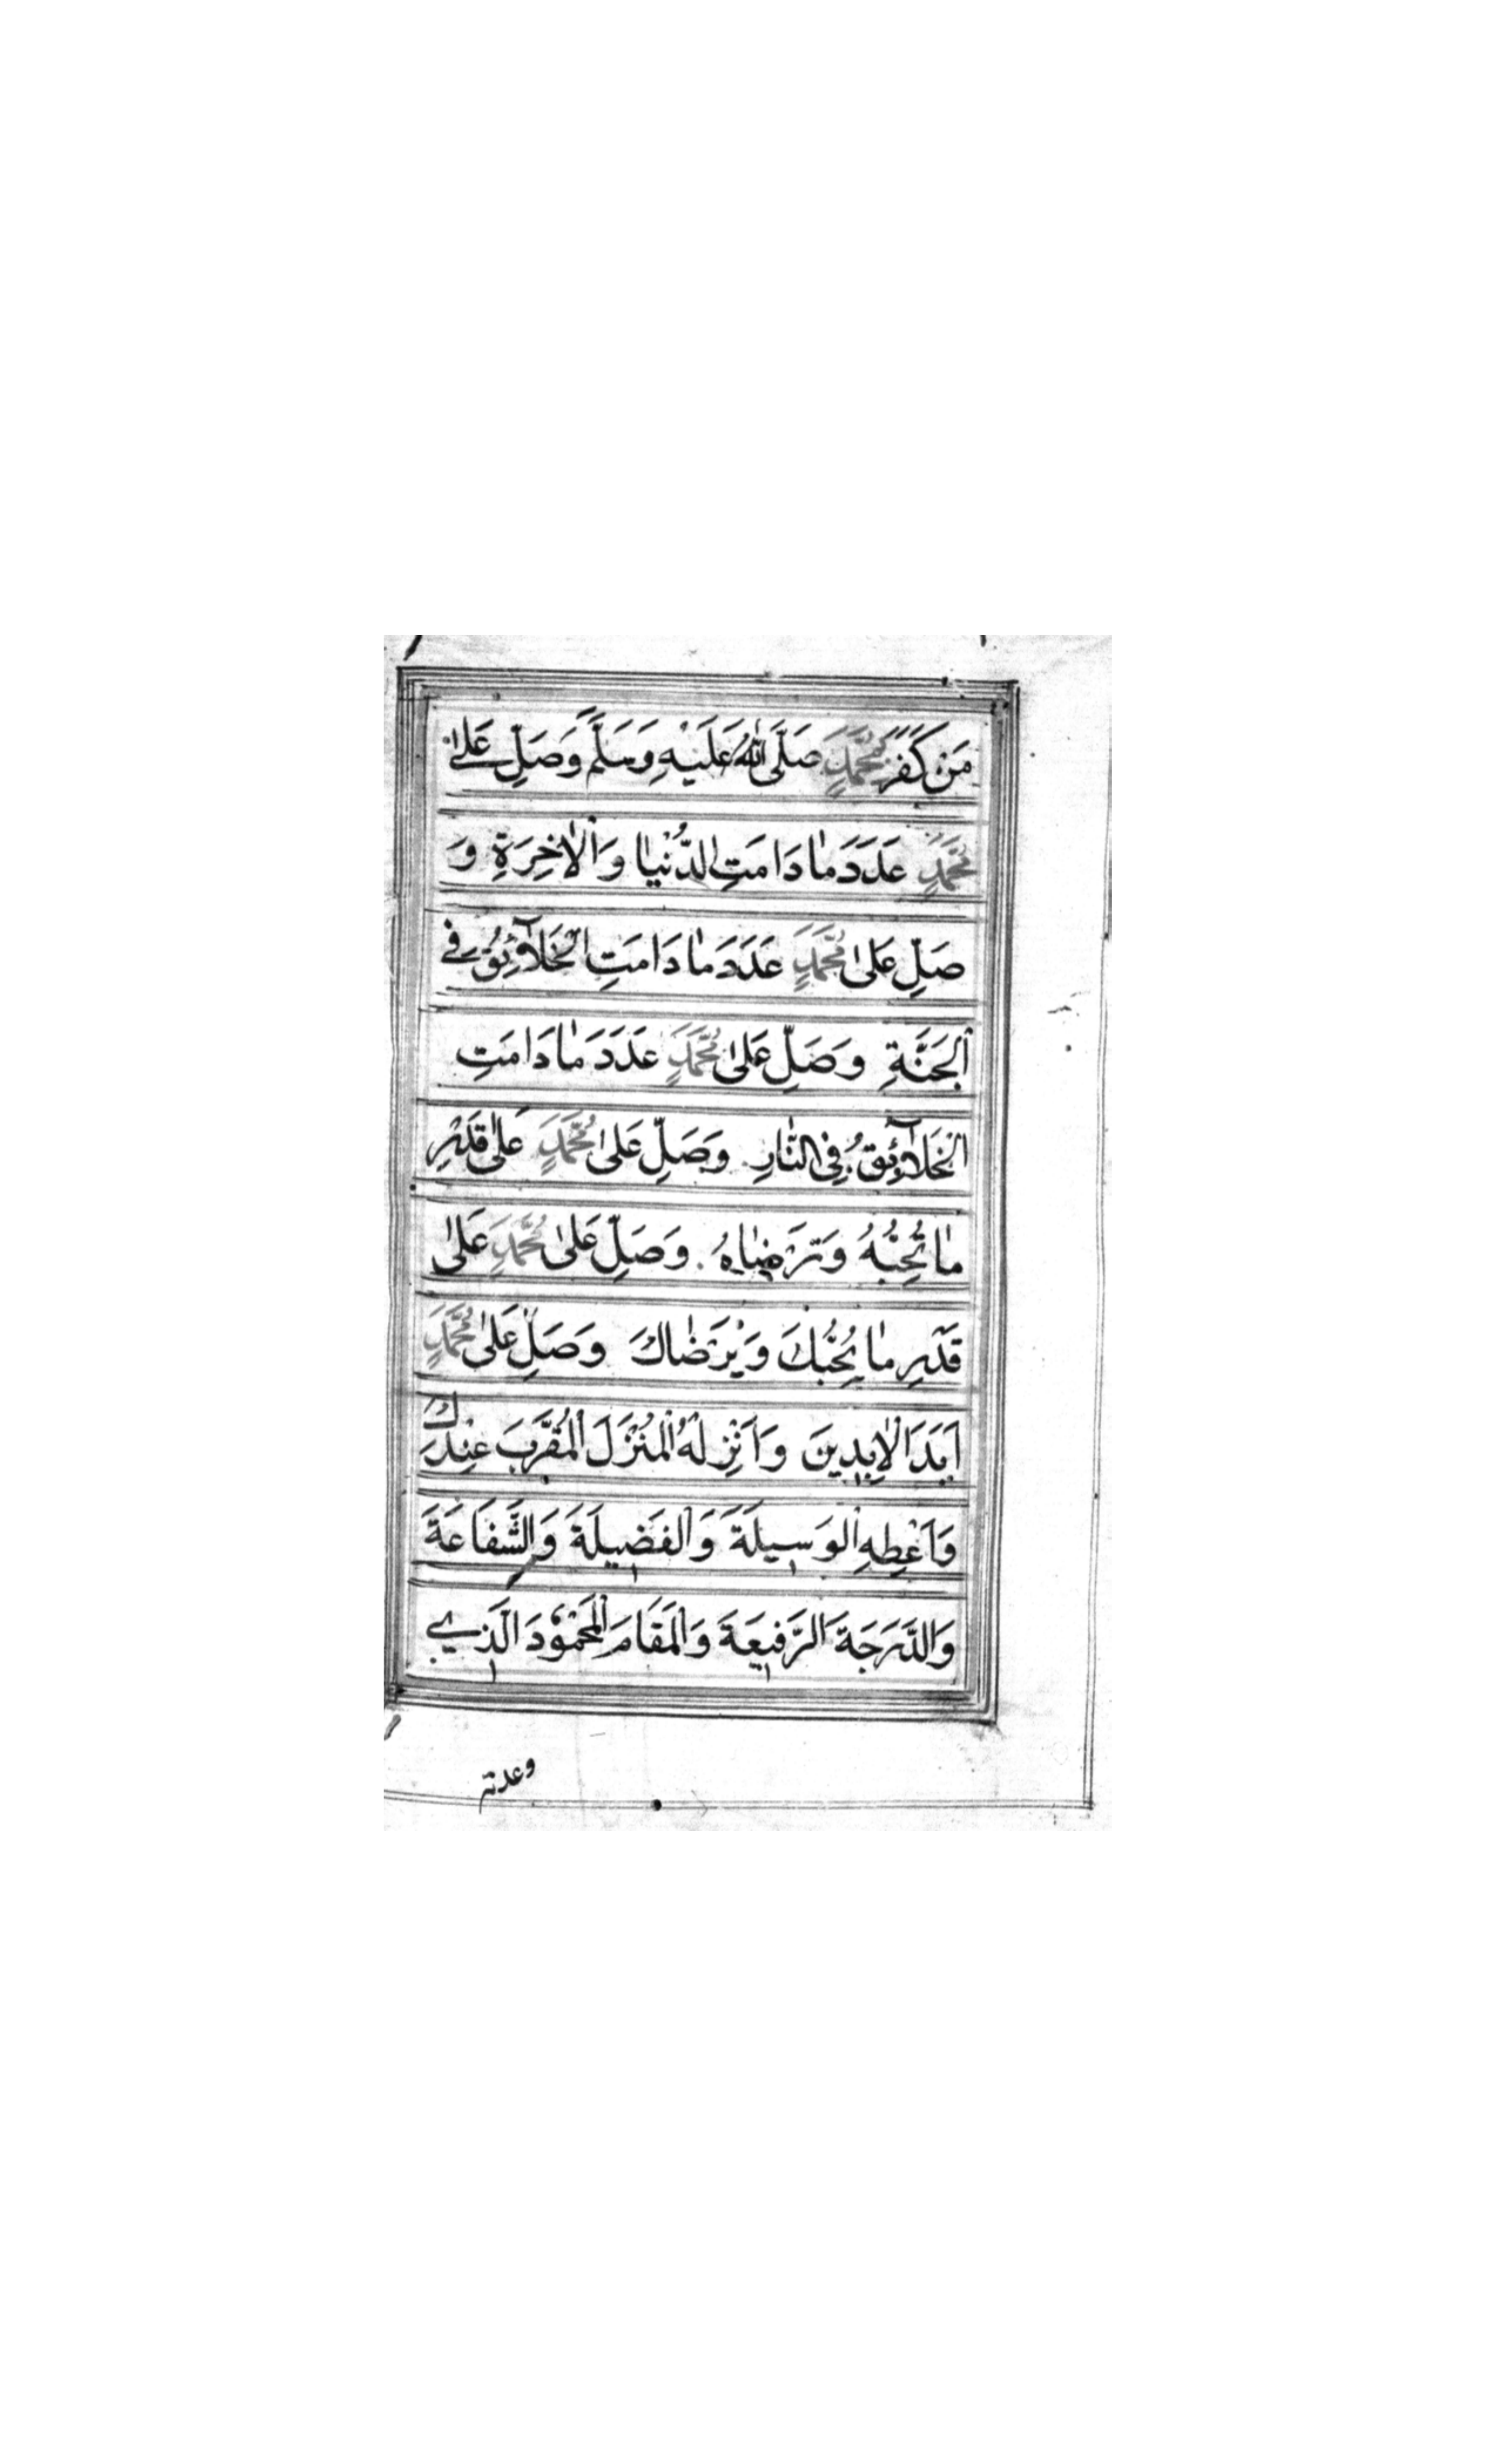 مَنْ كَفَرَ بِمُحَمَّدٍ صَلَّى اللهُ عَلَيْهِ وَسَلَّمَ وَصَلِّ عَلىٰ
مُحَمَّدٍ عَدَدَ مٰا دَامَتِ الدُّنْيٰا وَالْاٰخِرَةِ وَ
صَلِّ عَلىٰ مُحَمَّدٍ عَدَدَ مٰا دَامَتِ الْخَلَآئِقُ فِے
الْجَنَّةِ وَصَلِّ عَلىٰ مُحَمَّدٍ عَدَدَ مٰا دَامَتِ
الْخَلَآئِقُ فِى النّٰارِ وَصَلِّ عَلىٰ مُحَمَّدٍ عَلىٰ قَدْرِ
مٰا تُحِبُّهُ وَتَرْضٰاهُ وَصَلِّ عَلىٰ مُحَمَّدٍ عَلىٰ
قَدْرِ مٰا يُحِبُّكَ وَيَرْضٰاكَ وَصَلِّ عَلىٰ مُحَمَّدٍ
اَبَدَ الْاٰبِدِينَ وَاَنْزِلْهُ الْمُنْزَلَ الْمُقَرَّبَ عِنْدَكَ
وَاَعْطِهِ الْوَسِيلَةَ وَالْفَضِيلَةَ وَالشَّفَاعَةَ
وَالدَّرَجَةَ الرَّفِيعَةَ وَالْمَقَامَ الْمَحْمُوْدَ الَّذِے
وعدته